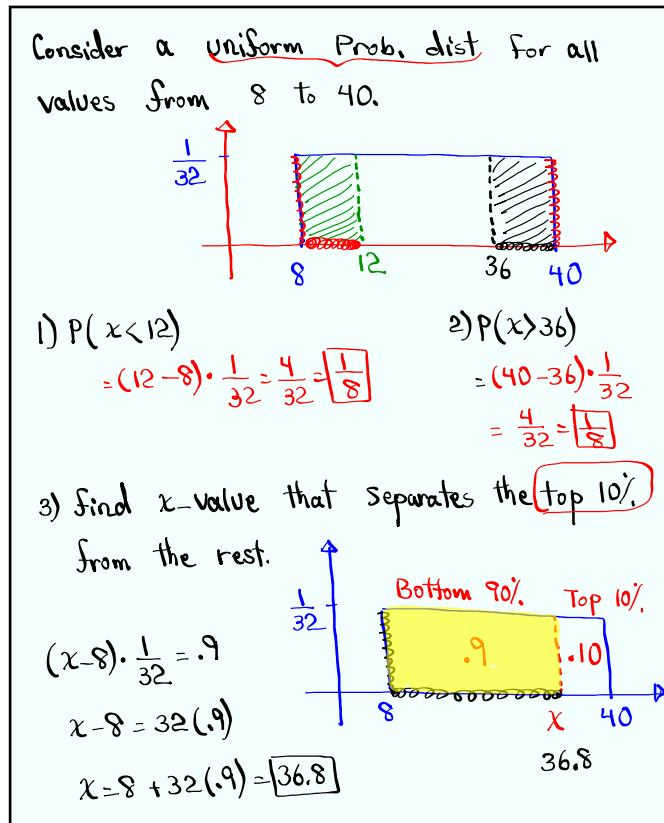 Consider a uniform Prob. dist for all
values from 8 to 40.
1/32
8 12 36 40
1) P(x<12)
= (12-8)· 1/32 = 4/32 = 1/8
2) P(x>36)
= (40-36)· 1/32
= 4/32 = 1/8
3) find x-value that separates the top 10%
from the rest.
Bottom 90% Top 10%
1/32
.9 .10
8 x 40
36.8
(x-8)· 1/32 = .9
x-8 = 32(.9)
x=8 +32(.9) = 36.8